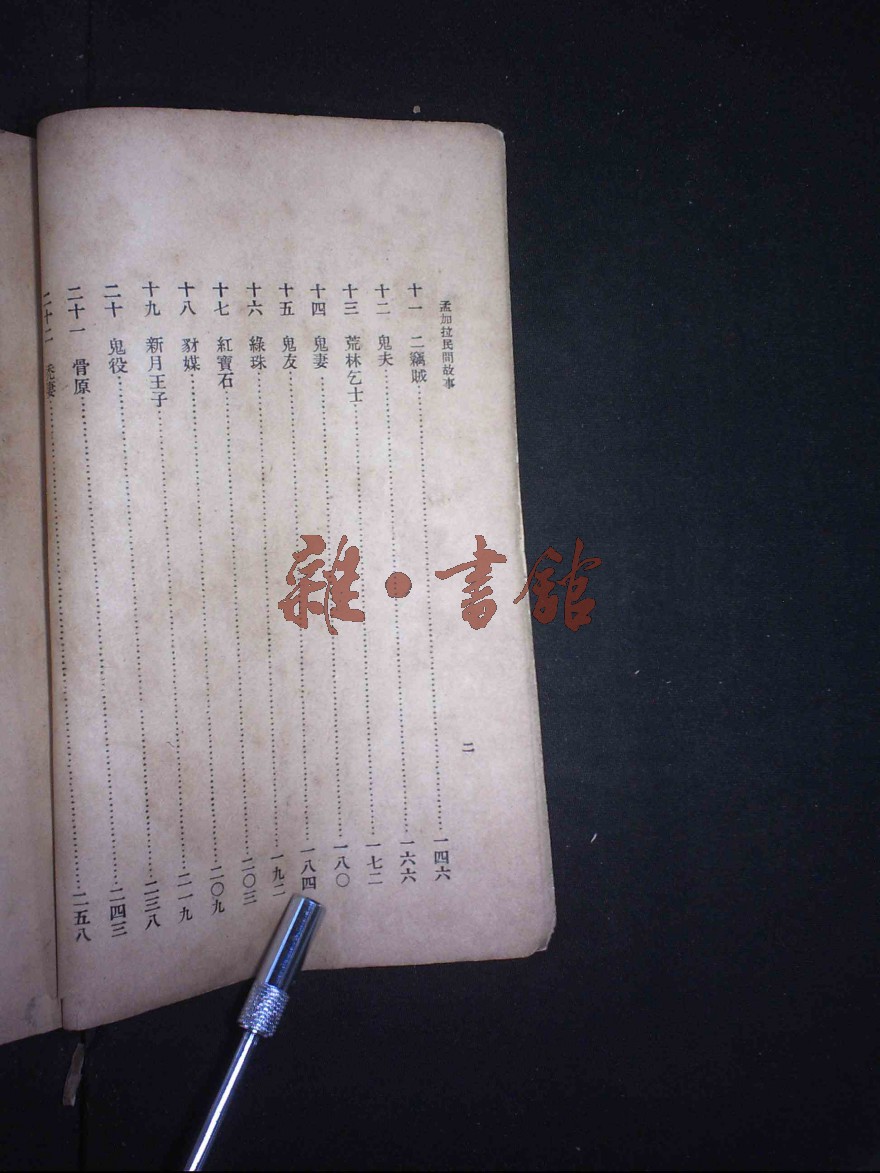 孟加拉民間故事
二
十一　二竊賊……一四六
十二　鬼夫……一六六
十三　荒林乞士……一七二
十四　鬼妻……一八〇
十五　鬼友……一八四
十六　綠珠……一九二
十七　紅寶石……二〇三
十八　豺媒……二〇九
十九　新月王子……二一九
二十　鬼役……二三八
二十一　骨原……二四三
二十二　禿妻……二五八
雜・書館